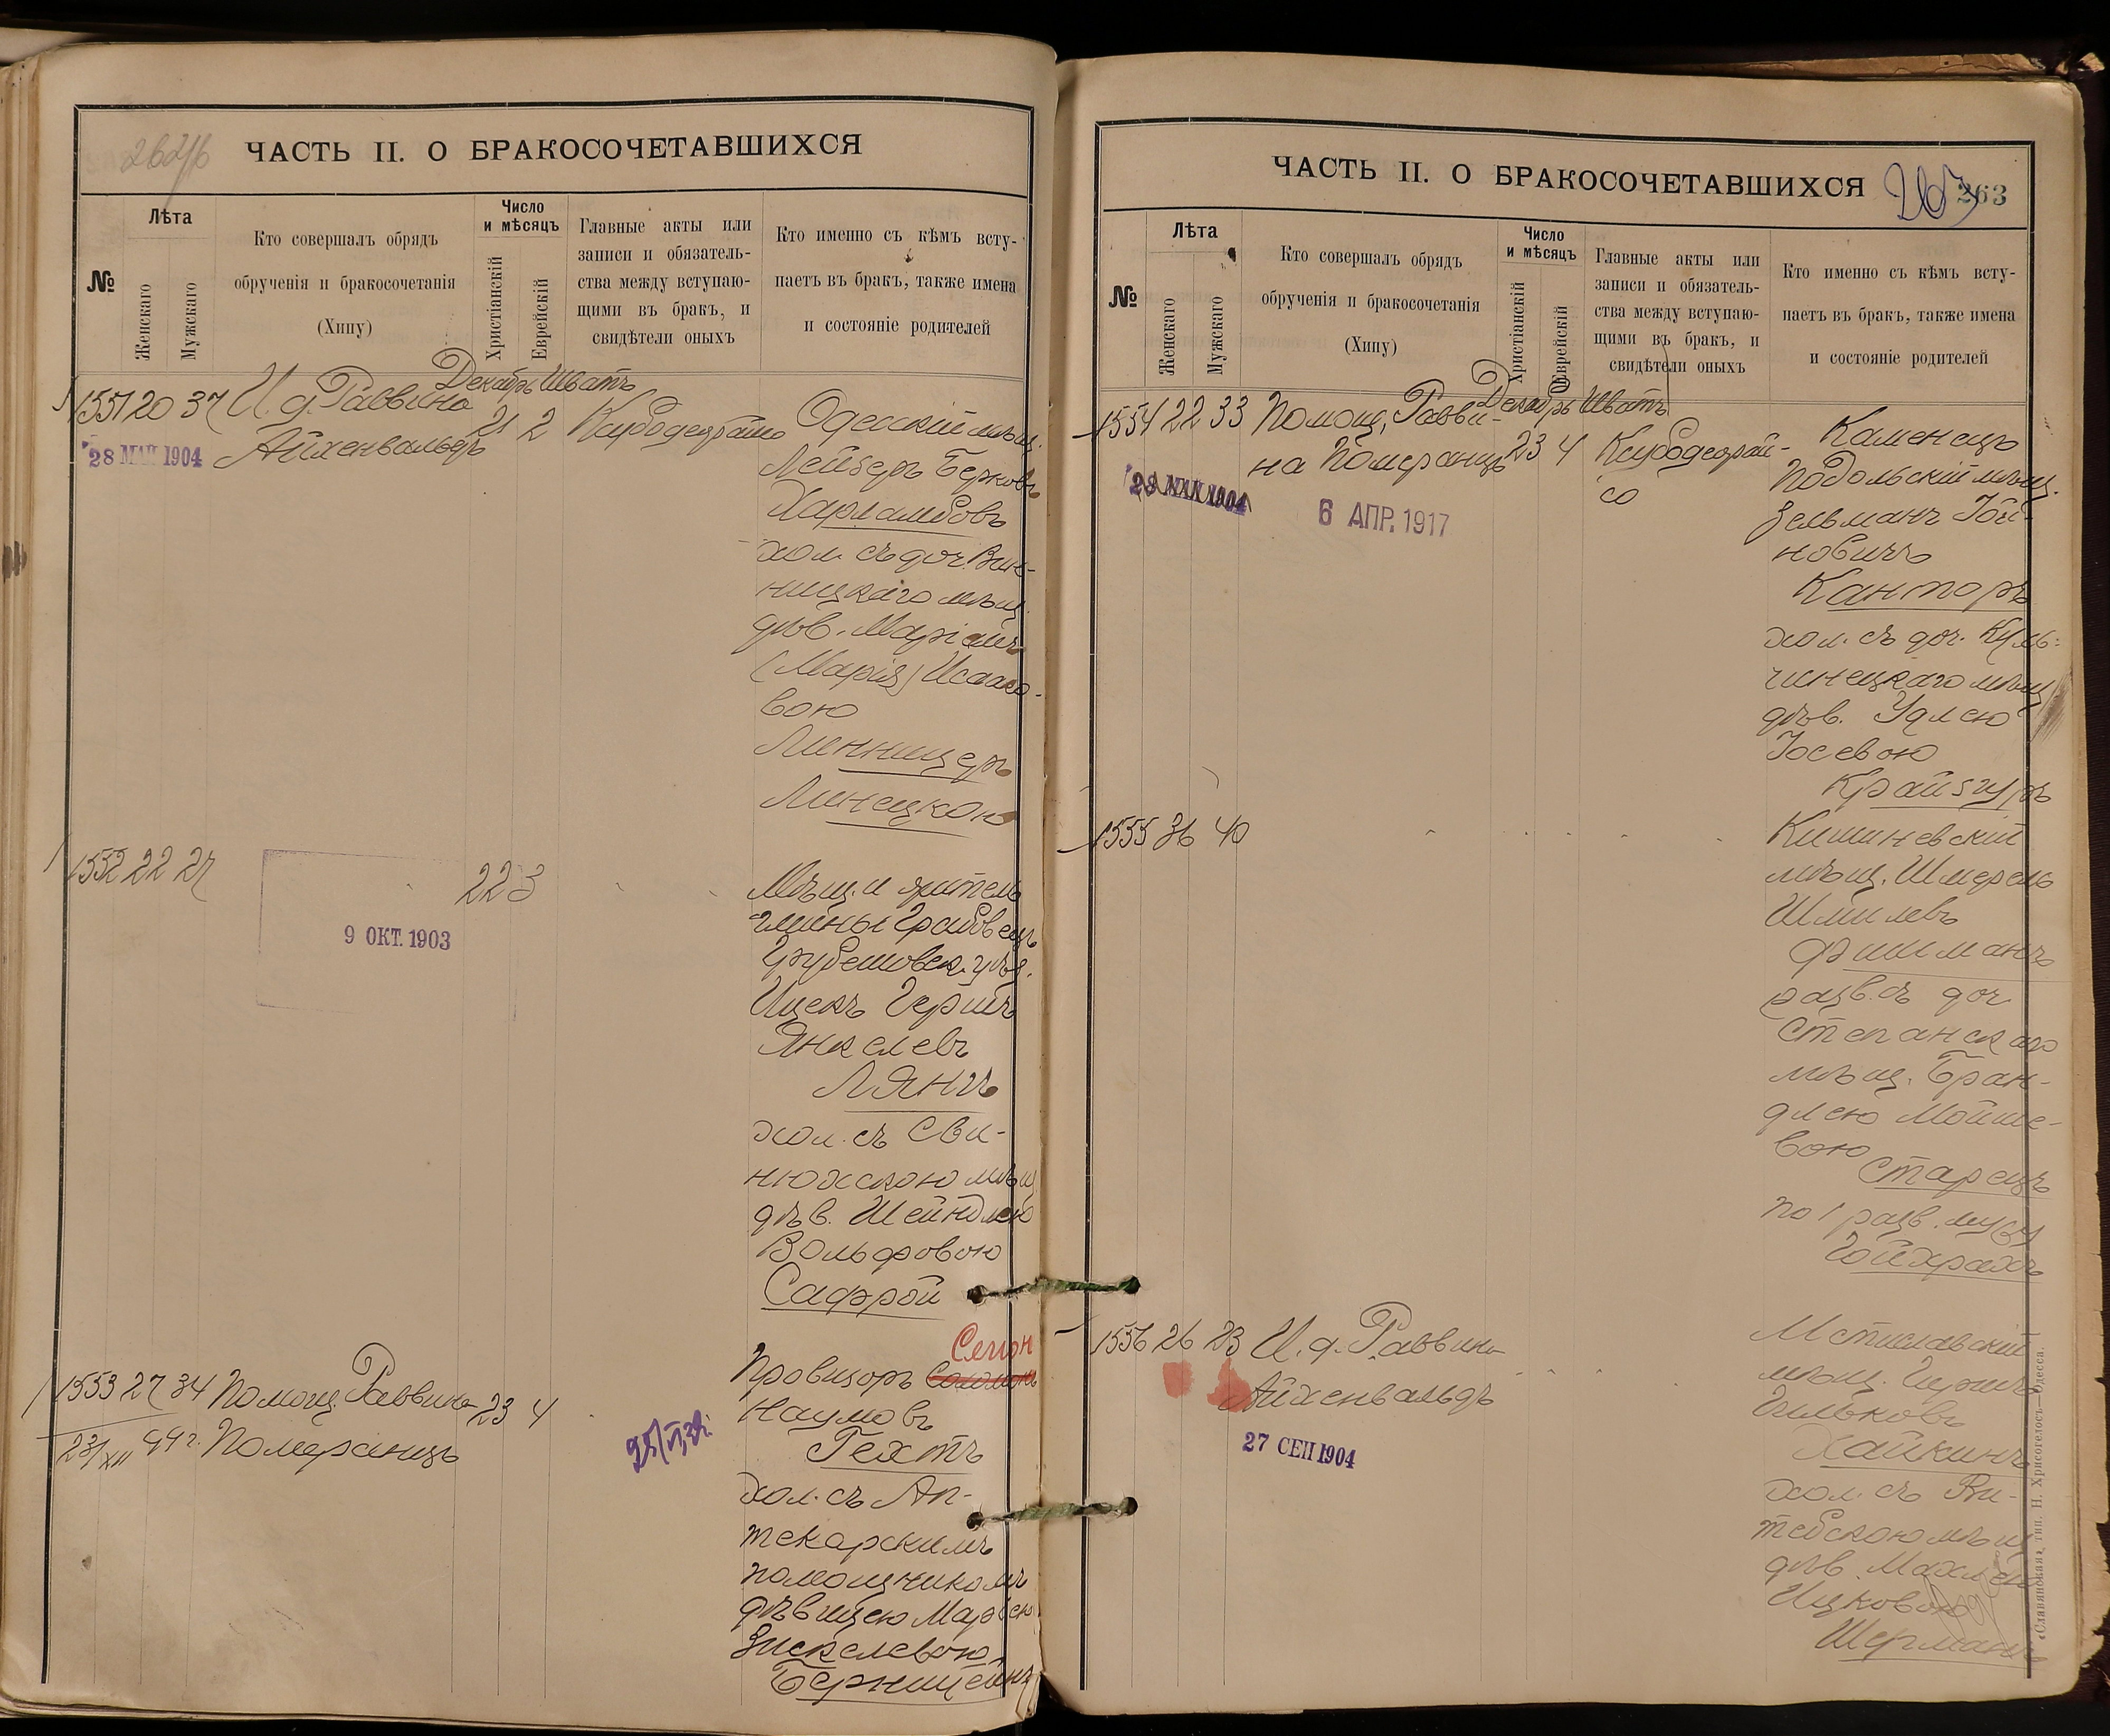 262/б
ЧАСТЬ II. О БРАКОСОЧЕТАВШИХСЯ
№
Лѣта
Женскаго
Мужскаго
Кто совершалъ обрядъ
обрученія и бракосочетанія
(Хипу)
Число
и мѣсяцъ
Христіанскій
Еврейскій
Главные акты или
записи и обязатель-
ства между вступаю-
щими въ бракъ, и
свидѣтели оныхъ
Кто именно съ кѣмъ всту-
паетъ въ бракъ, также имена
и состояніе родителей
Декабрь Шватъ
1551 20 37 И. д. Раввина 21 2
Айхенвальдъ
28 МАЙ 1904
Одесскій мѣщ.
Лейзеръ Берковъ
Харламбовъ
хол. съ доч. Вин-
ницкаго мѣщ.
дѣв. Маріамъ
(Марія) Исаако-
вою
Линницеръ
Линецкою
1552 22 27 22 3
9 ОКТ. 1903
Мѣщ. и житель
гмины Грабовецъ
Грубешовск. уѣз.
Ицекъ Гершъ
Янкелевъ
Лянъ
хол. съ Сви-
нюхскою мѣщ.
дѣв. Шейндлею
Вольфовою
Сафрой
1553 27 34 Помощ. Раввина 23 4
23/XII 99 г. Померанцъ
Провизоръ Соломонъ
Наумовъ
Гехтъ
хол. съ Ап-
текарскимъ
помощникомъ
дѣвицею Марьею
Зискелевою
Бернштейнъ
ЧАСТЬ II. О БРАКОСОЧЕТАВШИХСЯ
263
№
Лѣта
Женскаго
Мужскаго
Кто совершалъ обрядъ
обрученія и бракосочетанія
(Хипу)
Число
и мѣсяцъ
Христіанскій
Еврейскій
Главные акты или
записи и обязатель-
ства между вступаю-
щими въ бракъ, и
свидѣтели оныхъ
Кто именно съ кѣмъ всту-
паетъ въ бракъ, также имена
и состояніе родителей
Декабрь Шватъ
1554 22 33 Помощ. Равви-
на Померанцъ 23 4
28 МАЙ 1904
6 АПР. 1917
Каменецъ
Подольскій мѣщ.
Зельманъ Іой-
новичъ
Канторъ
хол. съ доч. Куль-
чинецкаго мѣщ.
дѣв. Удлею
Іосевою
Крайзуръ
1555 36 40
Кишиневскій
мѣщ. Шмерель
Шмилевъ
Фишманъ
разв. съ доч.
Степанскаго
мѣщ. Бран-
длею Мойше-
вою
Старецъ
по 1 разв. мужу
Гойхрахъ
1556 26 23 И. д. Раввина
Айхенвальдъ
27 СЕП 1904
Мстиславскій
мѣщ. Гиршъ
Гильковъ
Хайкинъ
хол. съ Ви-
тебскою мѣщ.
дѣв. Махлею
Ицковою
Шерманъ
«Славянская» тип. Н. Хрисогелосъ—Одесса.